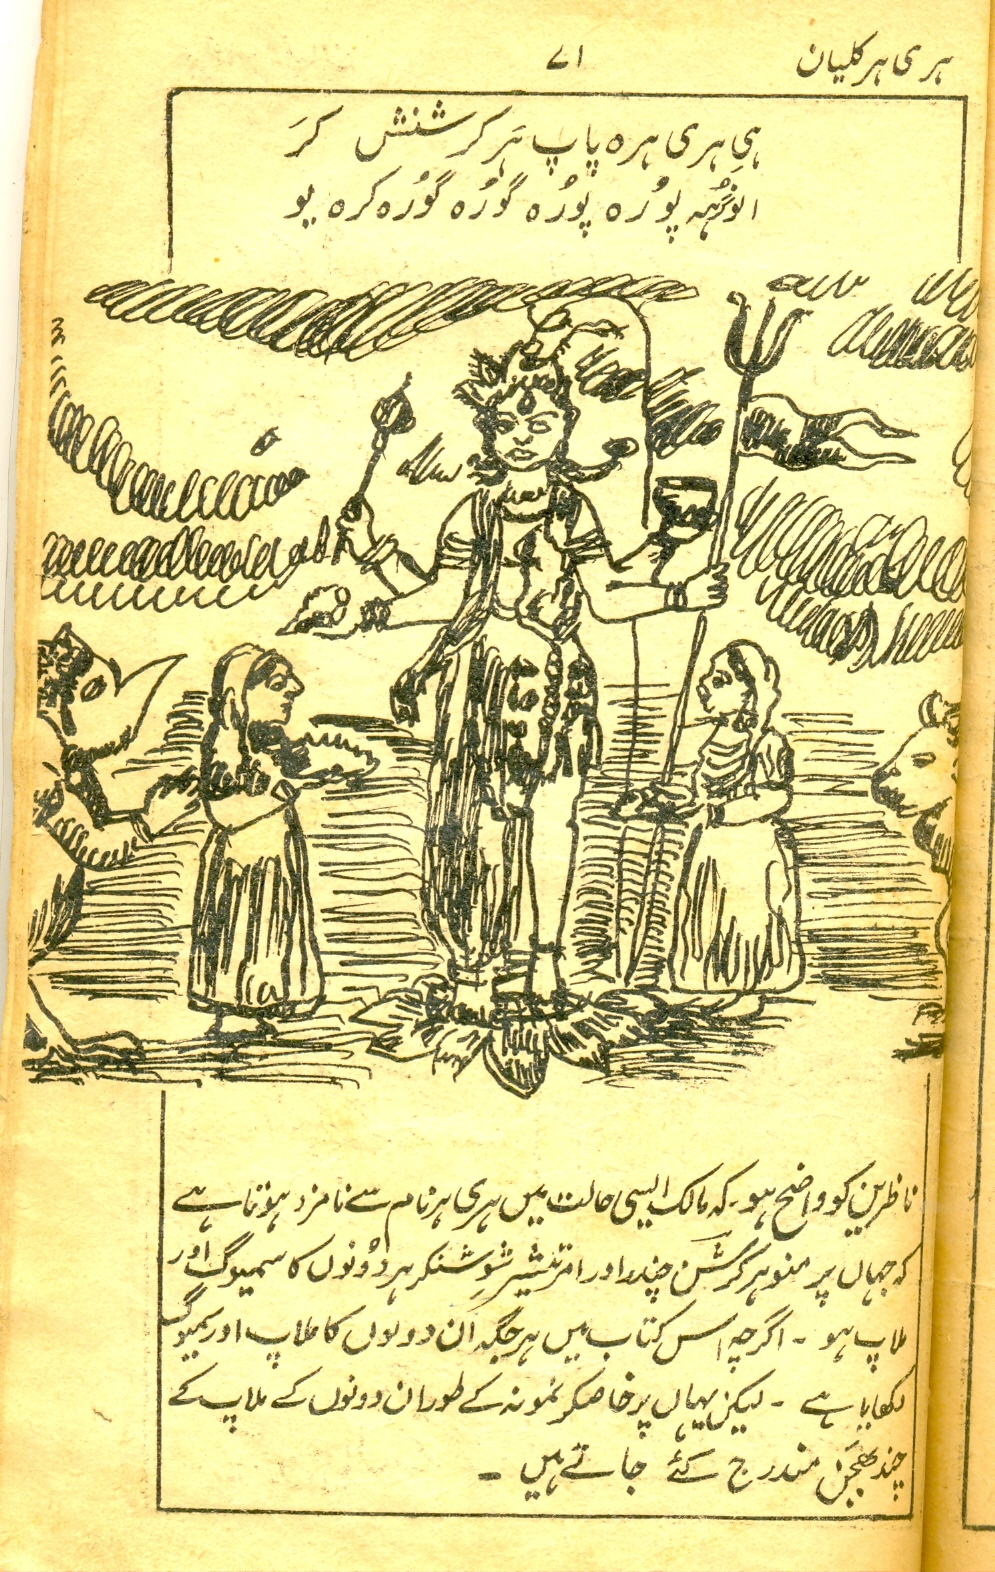 ہری ہر کلیان
۷۱
ہیِ ہری ہرہ پاپ ہَر کرشنش کرَ
انوگرُہہ پوُرہ پوُرہ گوُرہ گوُرہ کرہ یو
ناظرین کو واضح ہو۔ کہ مالک ایسی حالت میں ہری ہر نام سے نامزد ہوتا ہے
کہ جہاں پر منوہر کرشن چندر اور امرتیشیر شوِشنکر ہر دوُنوں کا سمیوگ اور
ملاپ ہو ۔ اگرچہ اس کتاب میں ہر جگہ ان دونوں کا ملاپ اور سمیوگ
لکھایا ہے ۔ لیکن یہاں پر خاصکر نمونہ کے طور ان دونوں کے ملاپ کے
چند بھجَن مندرج کئے جاتے ہیں ۔